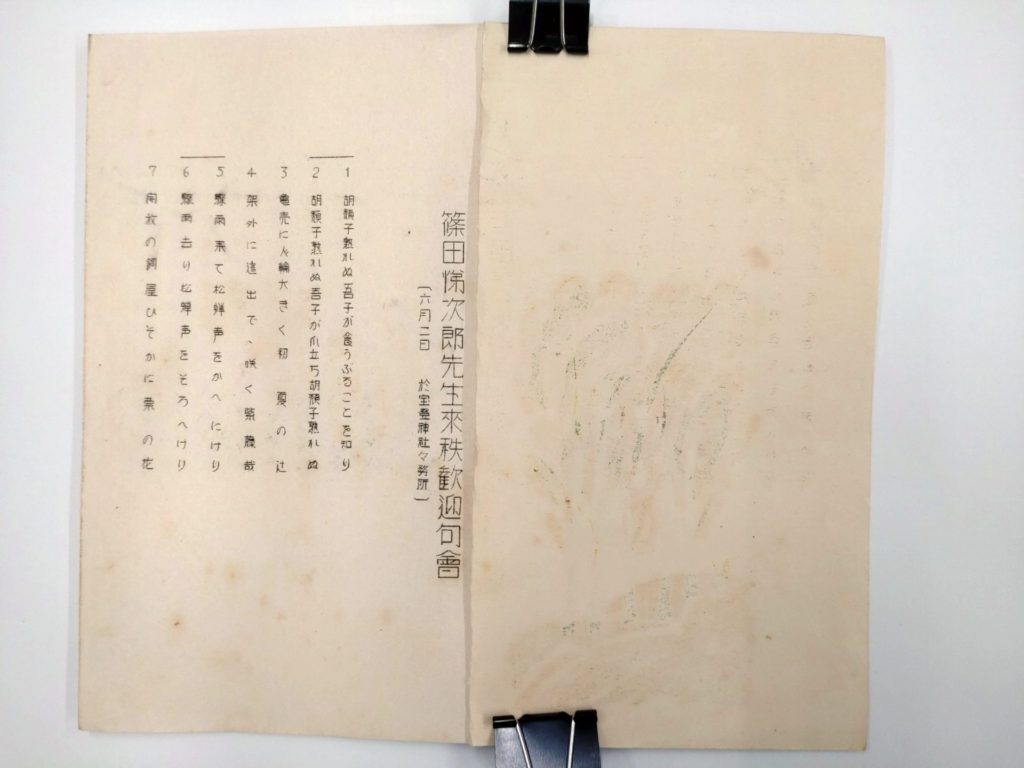 篠田悌次郎先生來秩歡迎句會
(六月二日 於宝登神社々務所)
1 胡頽子熟れぬ吾子が食うぶることを知り
2 胡頽子熟れぬ吾子が爪立ち胡頽子熟れぬ
3 亀売に人輪大きく初夏の辻
4 架外に這出で、咲く紫藤哉
5 驟雨来て松蝉声をかへにけり
6 驟雨去り松蝉声をそろへけり
7 の鋼屋ひそかに栗の花